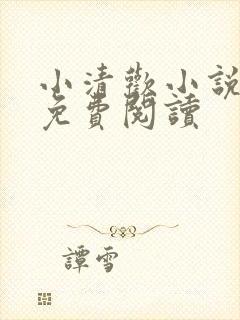 小清歡小說
免費閱讀
譚雪